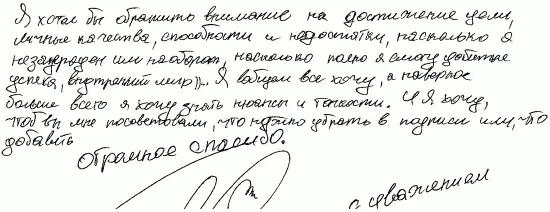 Я хотел бы обратить внимание на достижение цели,
личные качества, способности и недостатки, насколько я
незауряден или наоборот, насколько полно я смогу добиться
успеха, внутренний мир)). Я вобщем все хочу, а наверное
больше всего я хочу знать нюансы и тонкости. И я хочу,
чтоб вы мне посоветовали, что нужно убрать в подписи или, что
добавить
огромное спасибо.
с уважением